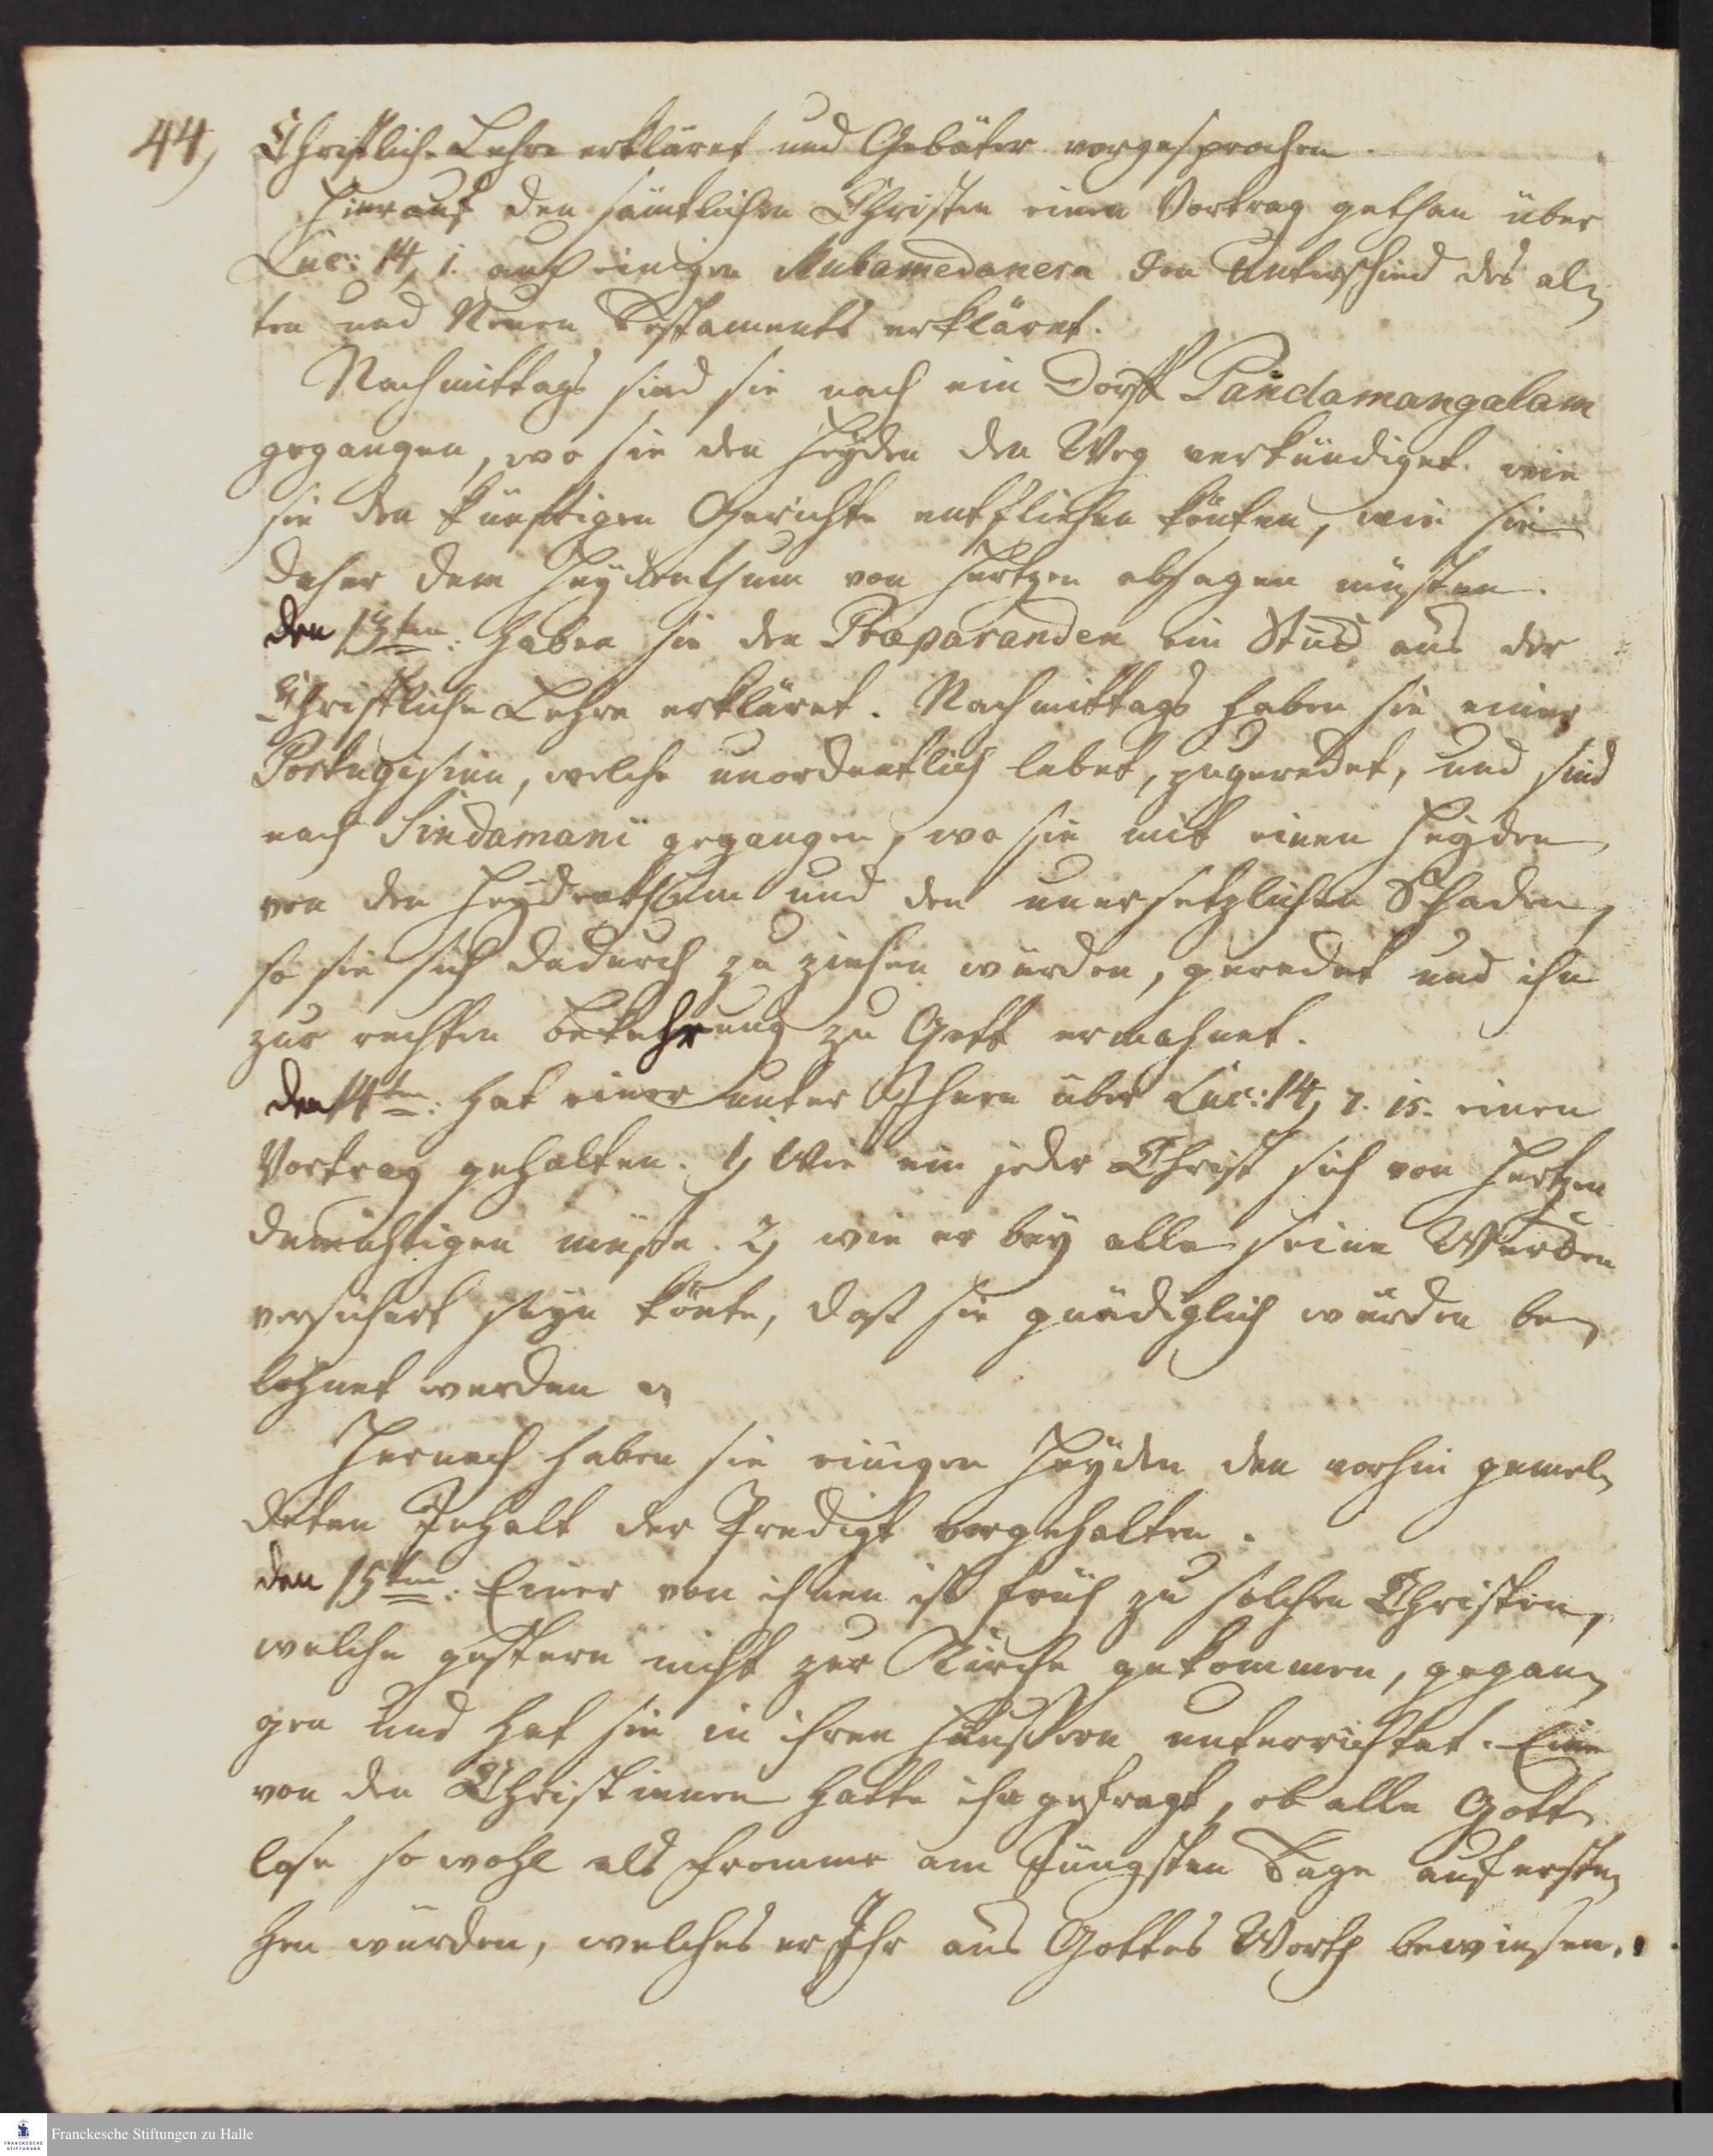 44,
Christliche Lehre erkläret und Gebäter vorgesprochen.
Hierauf den sämtlichen Christen einen Vortrag gethan über
Luc: 14, 1. auch einigen Muhamedanern den Unterschied des al-
ten und Neuen Testaments erkläret.
Nachmittags sind sie nach ein Dorff Pandamangalam
gegangen, wo sie den Heyden den Weg verkündiget wie
sie den künfftigen Gerichte entfliehen könten, wie sie
daher dem Heydenthum von Hertzen absagen müsten.
den 13ten: haben sie den Præparanden ein Stück aus der
Christliche Lehre erkläret. Nachmittags haben sie einer
Portugisinn, welche unordentlich lebet, zugeredet, und sind
nach Sindamani gegangen, wo sie mit einen Heyden
von den Heydenthum und den unersetzlichen Schaden,
so sie sich dadurch zu ziehen würden, geredet und ihn
zur rechten Bekehrung zu Gott ermahnet.
den 14ten: hat einer unter Ihnen über Luc: 14, 7. 15. einen
Vortrag gehalten. 1, Wie ein jeder Christ sich von Hertzen
demühtigen müsse. 2, wie er bey alle seine Wercken
versichert seyn könte, dass sie gnädiglich würden be-
lohnet werden
Hernach haben sie einigen Heyden den vorhin gemel-
deten Inhalt der Predigt vorgehalten.
den 15ten: Einer von ihnen ist früh zu solchen Christen,
welche gestern nicht zur Kirche gekommen, gegan-
gen und hat sie in ihren Häussern unterrichtet. Eine
von den Christinnen hatte ihn gefragt, ob alle Gott-
lose so wohl als fromme am Jüngsten Tage aufersten-
hen würden, welches er Ihr aus Gottes Worth bewiesen.
Franckesche Stiftungen zu Halle